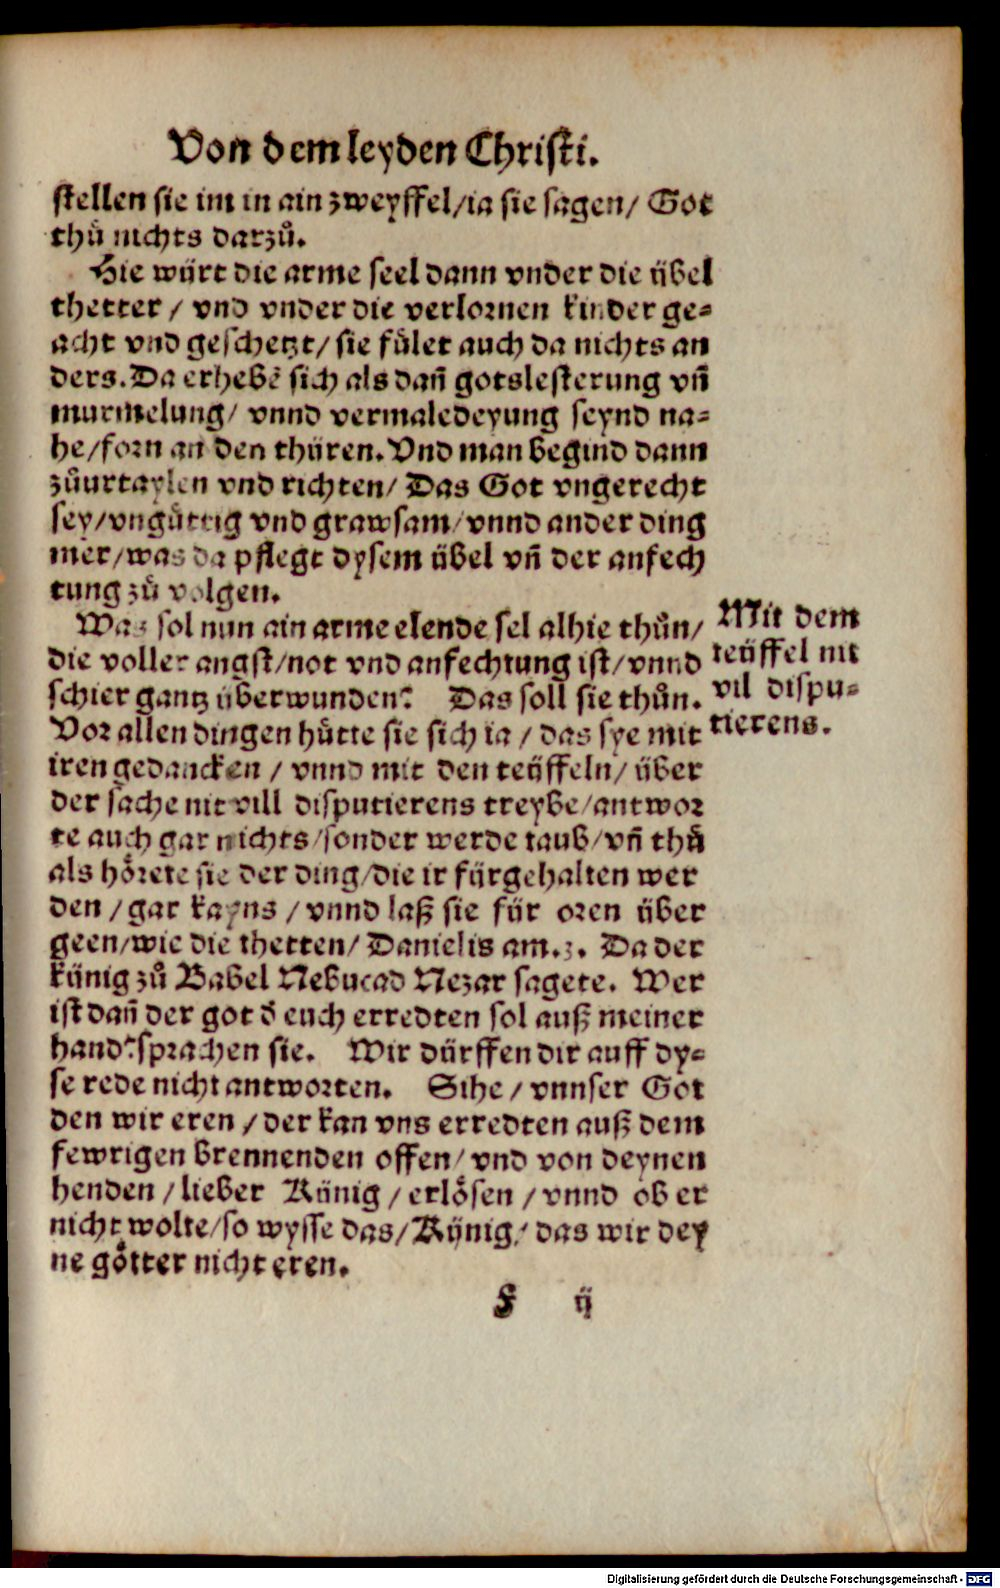 Von dem leyden Christi.
stellen sie im in ain zweyffel/ia sie sagen/ Got
thuͦ nichts darzuͦ.
Hie würt die arme seel dann vnder die übel
thetter / vnd vnder die verlornen kinder ge⸗
acht vnd geschetzt/ sie fuͤlet auch da nichts an
ders. Da erhebẽ sich als dañ gotslesterung vñ
murmelung/ vnnd vermaledeyung seynd na⸗
he/forn an den thüren. Vnd man begind dann
zuͦurtaylen vnd richten/ Das Got vngerecht
sey/vnguͤttig vnd grawsam/vnnd ander ding
mer/was da pflegt dysem übel vñ der anfech
tung zuͦ volgen.
Was sol nun ain arme elende sel alhie thuͦn/
die voller angst/not vnd anfechtung ist/vnnd
schier gantz überwunden? Das soll sie thuͦn.
Vor allen dingen huͤtte sie sich ia / das sye mit
iren gedancken / vnnd mit den teüffeln/ über
der sache nit vill disputierens treybe/antwor
te auch gar nichts/sonder werde taub/vñ thuͦ
als hoͤrete sie der ding/die ir fürgehalten wer
den / gar kayns / vnnd laß sie für oren über
geen/wie die thetten/ Danielis am.3. Da der
künig zuͦ Babel Nebucad Nezar sagete. Wer
ist dañ der got d̕ euch erredten sol auß meiner
hand?sprachen sie. Wir dürffen dir auff dy⸗
se rede nicht antworten. Sihe / vnnser Got
den wir eren / der kan vns erredten auß dem
fewrigen brennenden offen/ vnd von deynen
henden / lieber Künig / erloͤsen / vnnd ob er
nicht wolte/so wysse das/ Künig/ das wir dey
ne goͤtter nicht eren.
F ij
Mit dem
teüffel nit
vil dispu⸗
tierens.
Digitalisierung gefördert durch die Deutsche Forschungsgemeinschaft - DFG